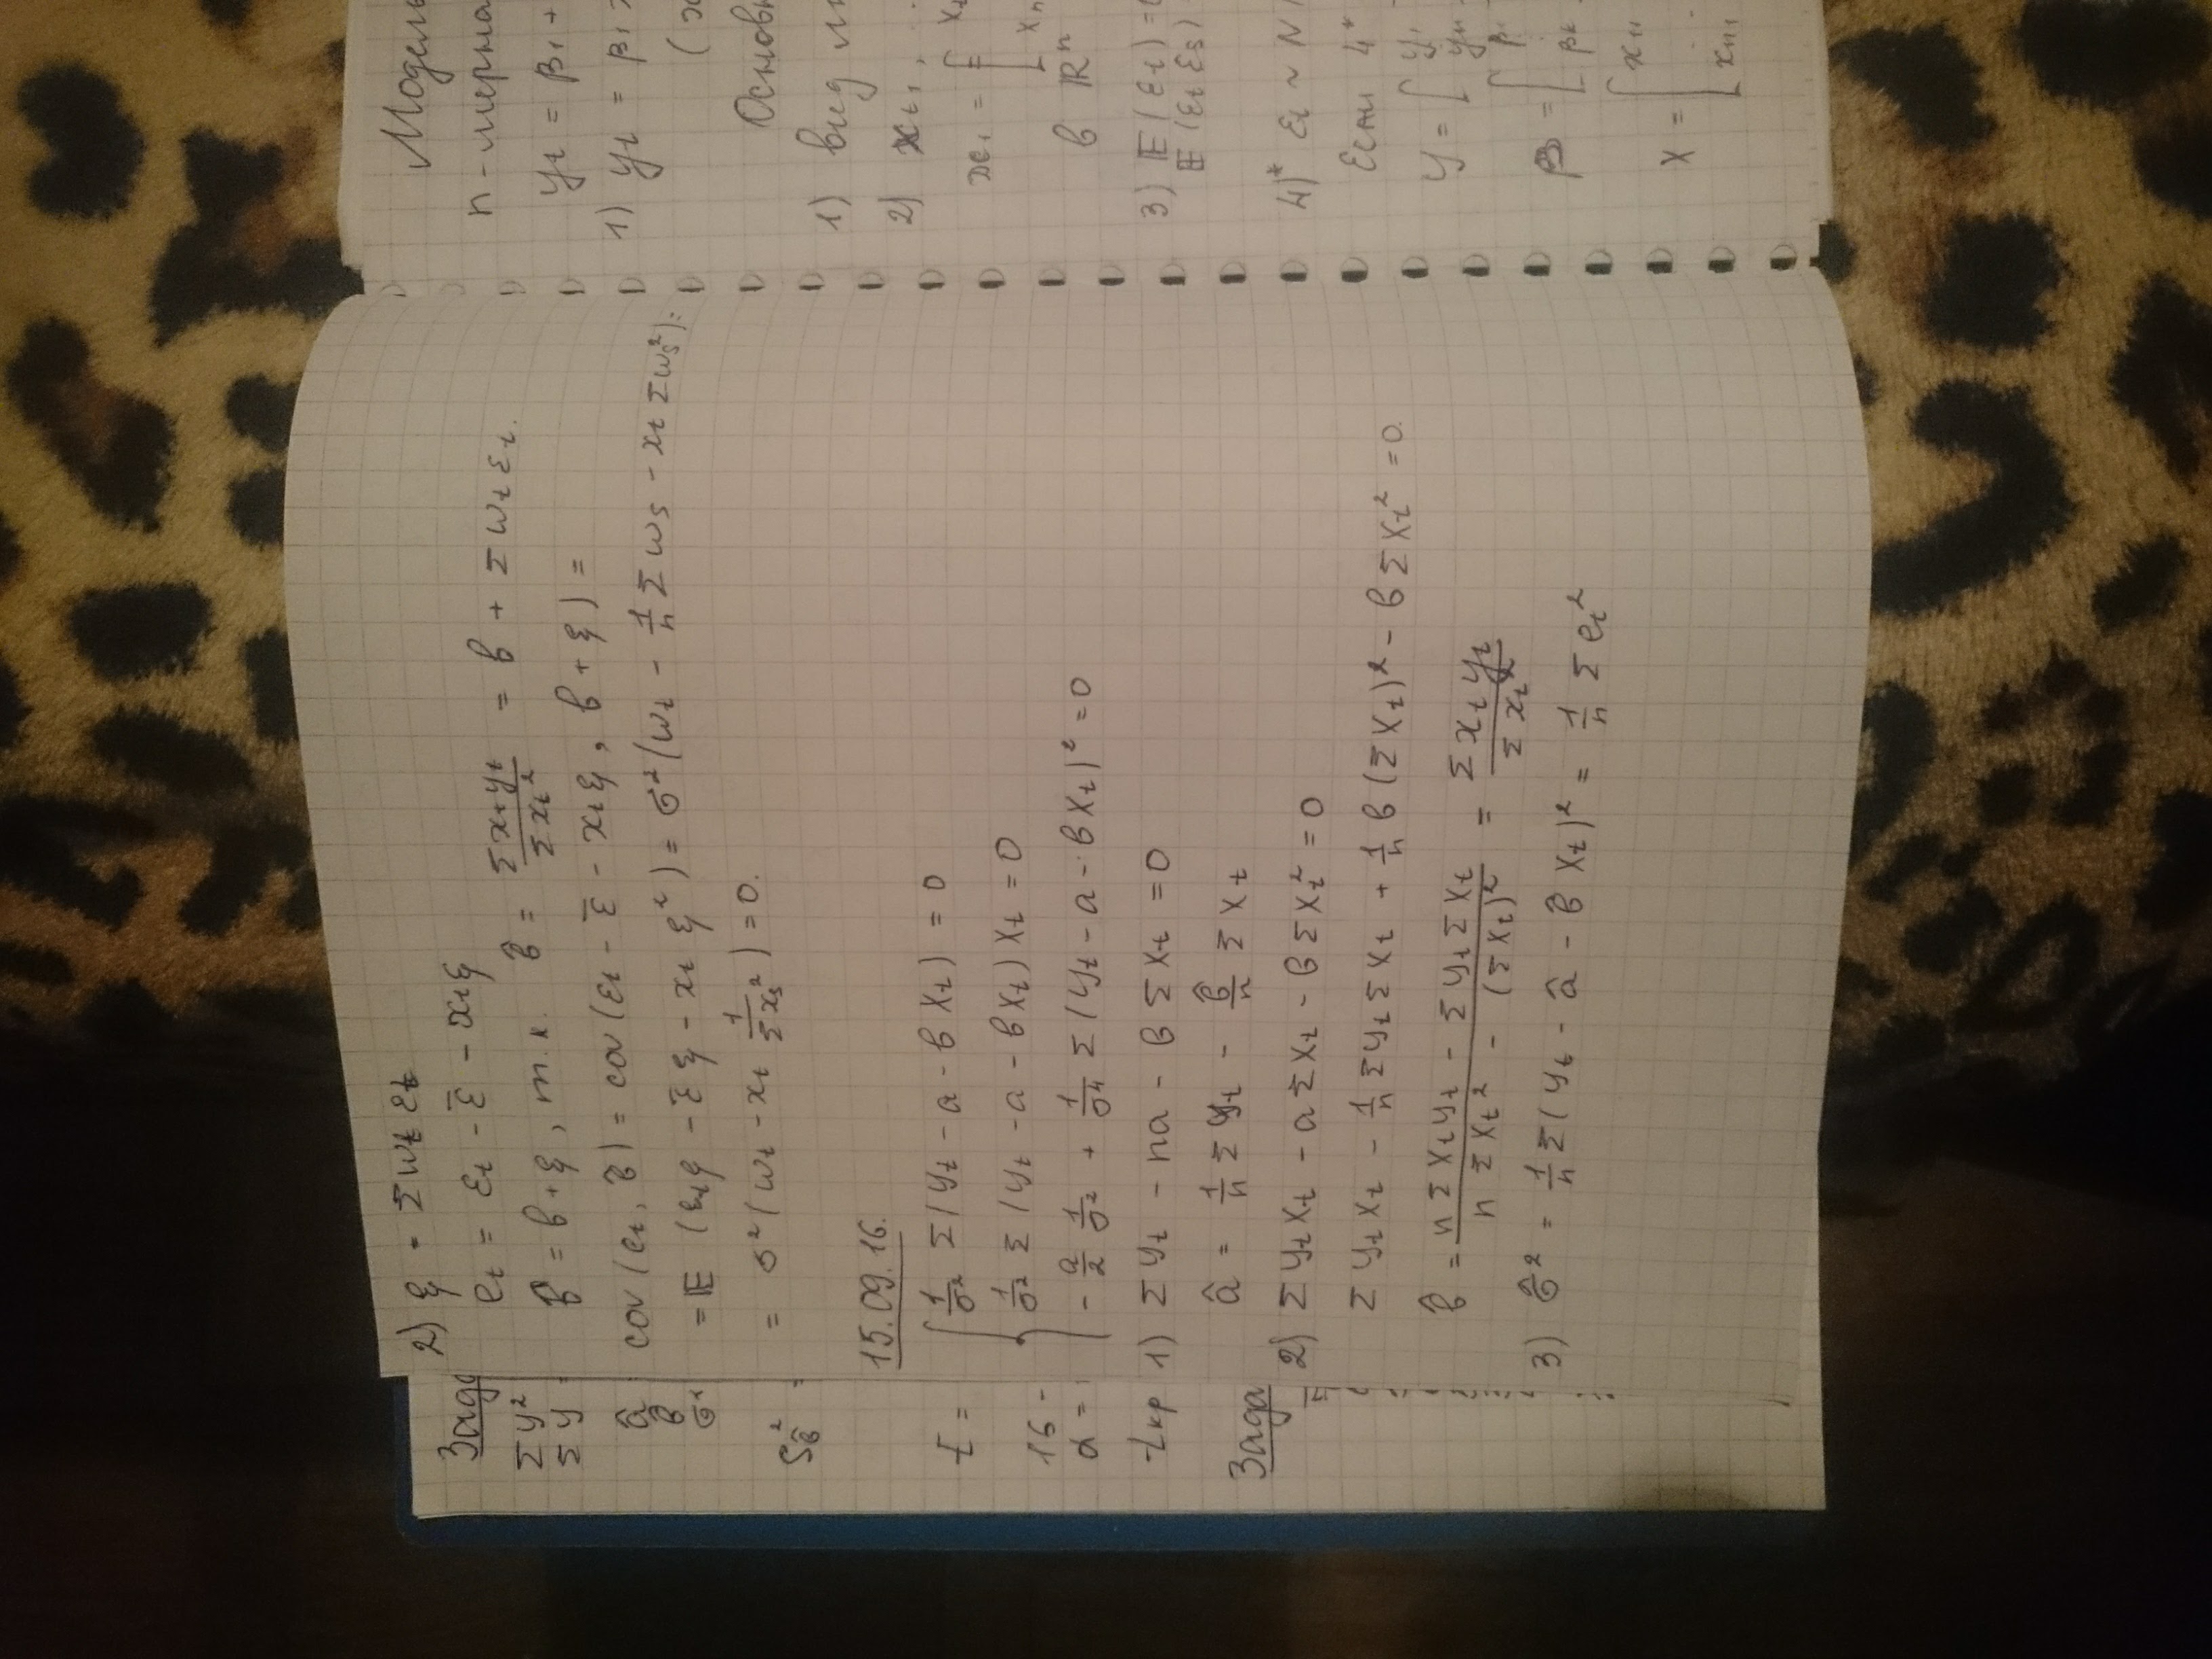 2) ξ = Σ wₜ εₜ
eₜ = εₜ - ε̄ - xₜξ
b̂ = b + ξ, т.к. b̂ = Σxₜyₜ / Σxₜ² = b + Σ wₜ εₜ.
cov(eₜ, b̂) = cov(εₜ - ε̄ - xₜξ, b + ξ) =
= 𝔼(εₜξ - ε̄ξ - xₜξ²) = σ²(wₜ - 1/n Σ wₛ - xₜ Σ wₛ²) =
= σ²(wₜ - xₜ 1/Σxₛ²) = 0.
15.09.16.
1/σ² Σ(yₜ - a - b xₜ) = 0
1/σ² Σ(yₜ - a - b xₜ)xₜ = 0
- n/2 1/σ² + 1/σ⁴ Σ(yₜ - a - b xₜ)² = 0
1) Σyₜ - na - b Σxₜ = 0
â = 1/n Σyₜ - b̂/n Σxₜ
2) Σyₜxₜ - a Σxₜ - b Σxₜ² = 0
Σyₜxₜ - 1/n Σyₜ Σxₜ + 1/n b(Σxₜ)² - b Σxₜ² = 0.
b̂ = (n Σxₜyₜ - Σyₜ Σxₜ) / (n Σxₜ² - (Σxₜ)²) = Σxₜyₜ / Σxₜ²
3) σ̂² = 1/n Σ(yₜ - â - b̂ xₜ)² = 1/n Σeₜ²
Σy²
Σy
â
b̂
σ̂
S²b̂ =
t =
16 -
α =
tкр
Модель
n - мерна
yₜ = β₁ +
1) yₜ = β₁
Основн
1) вид
2) xₜ₁,
в ℝⁿ
3) 𝔼(εₜ) =
𝔼(εₜ εₛ)
4)* εₜ ~ N
Если 4*
y = [y₁
yₙ
β = [β₁
βₖ
X = [x₁₁
xₙ₁